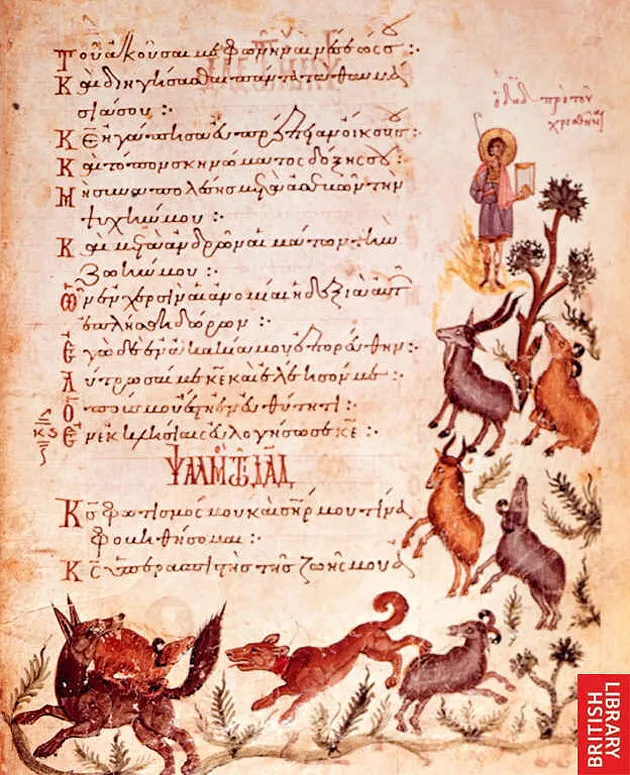 Τοῦ ἀκοῦσαί με φωνῆς αἰνέσεώς σου :·
Καὶ διηγήσασθαι πάντα τὰ θαυμά
σιά σου :·
Κ̅Ε̅ ἠγάπησα εὐπρέπειαν οἴκου σου :·
Καὶ τόπον σκηνώματος δόξης σου :·
Μὴ συναπολέσης μετὰ ἀσεβῶν τὴν
ψυχήν μου :·
Καὶ μετὰ ἀνδρῶν αἱμάτων τὴν
ζωήν μου :·
Ὧν ἐν χερσὶν αἱ ἀνομίαι ἡ δεξιὰ αὐτῶν
ἐπλήσθη δώρων :·
Ἐγὼ δὲ ἐν ἀκακία μου ἐπορεύθην :·
Λύτρωσαί με κ̅ε̅ καὶ ἐλέησόν με :·
Ὁ ποῦς μου ἔστη ἐν εὐθύτητι :·
κϛ
Ἐν ἐκκλησίαις εὐλογήσω σε κ̅ε̅ :·
ΨΑΛΜὸς Τῶ Δ̅Α̅Δ̅
Κ̅ς̅ φωτισμός μου καὶ σ̅η̅ρ̅ μου τίνα
φοβηθήσομαι :·
Κ̅ς̅ ὑπερασπιστὴς τῆς ζωῆς μου ἀ
ὁ δ̅α̅δ̅ πρὸ τοῦ
χρισθῆναι
BRITISH
LIBRARY